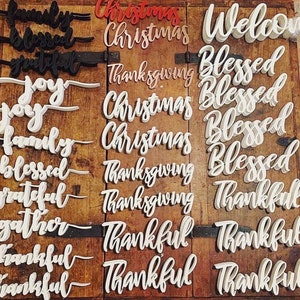 family
blessed
grateful
joy
joy
family
blessed
grateful
gather
thankful
thankful
Christmas
Christmas
Thanksgiving
Christmas
Christmas
Thanksgiving
Thanksgiving
Thankful
Thankful
Welcome
Blessed
Blessed
Blessed
Blessed
Thankful
Thankful
Thankful